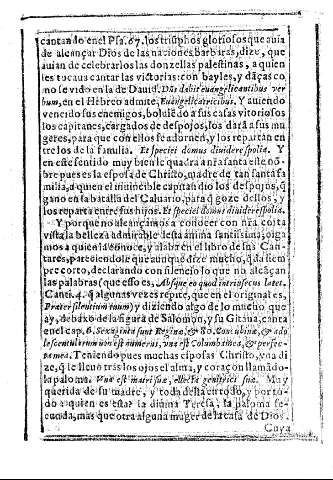 cantando en el Psa. 67. los triumphos gloriosos que auia
de alcançar Dios de las naciones barbaras, dize, que
auian de celebrarlos las donzellas palestinas, a quien
les tocaua cantar las victorias: con bayles, y dãças co
mo se vido en la de Dauid. Dñs dabit euangelicantibus ver
bum, en el Hebreo admite, Euangelicatricibus. Y auiendo
vencido sus enemigos, boluiẽdo a sus casas vitoriosos
los capitanes, cargados de despojos, los darã a sus mu
geres, para que con ellos se adornen, y los repartan en
tre los de la familia. Et speciei domus diuidere spolia. Y
en este sentido muy bien le quadra a nra santa este nõ-
bre pues es la esposa de Christo, madre de tan santa fa
milia, a quien el inuincible capitan dio los despojos, q̃
gano en la batalla del Caluario, para q̃ goze dellos, y
los reparta entre sus hijos. Et speciei domus diuidere spolia.
Y porque no alcançamos a conocer con nra corta
vista la belleza admirable desta anima santissima, oiga
mos a quien la conoce, y alaba en el libro de los Can-
tares, pareciendole que aunque dize mucho, q̃da siem
pre corto, declarando con silencio lo que no alcãçan
las palabras (que esso es, Absque eo quod intrinsecus latet.
Canti. 4. q̃ algunas vezes repite, que en el original es,
Præter silentium tuum) y diziendo algo de lo mucho que
ay, debaxo de la figura de Salomon, y su Gitana, canta
en el cap. 6. Sexaginta sunt Reginæ, & 80. Concubinæ, & ado
lescentularum non est numerus, vna est Columba mea, & perfec-
ta mea. Teniendo pues muchas esposas Christo, vna di
ze, q̃ le lleuo tras los ojos el alma, y coraçon llamãdo-
la paloma. Vna est matri suæ, electa genitrici suæ. Muy
querida de su madre, y toda della en todo, y por to-
do a quien es esta? la diuina Teresa, la paloma fe-
cunda, mas que otra alguna muger de la casa de Dios.
Cuya